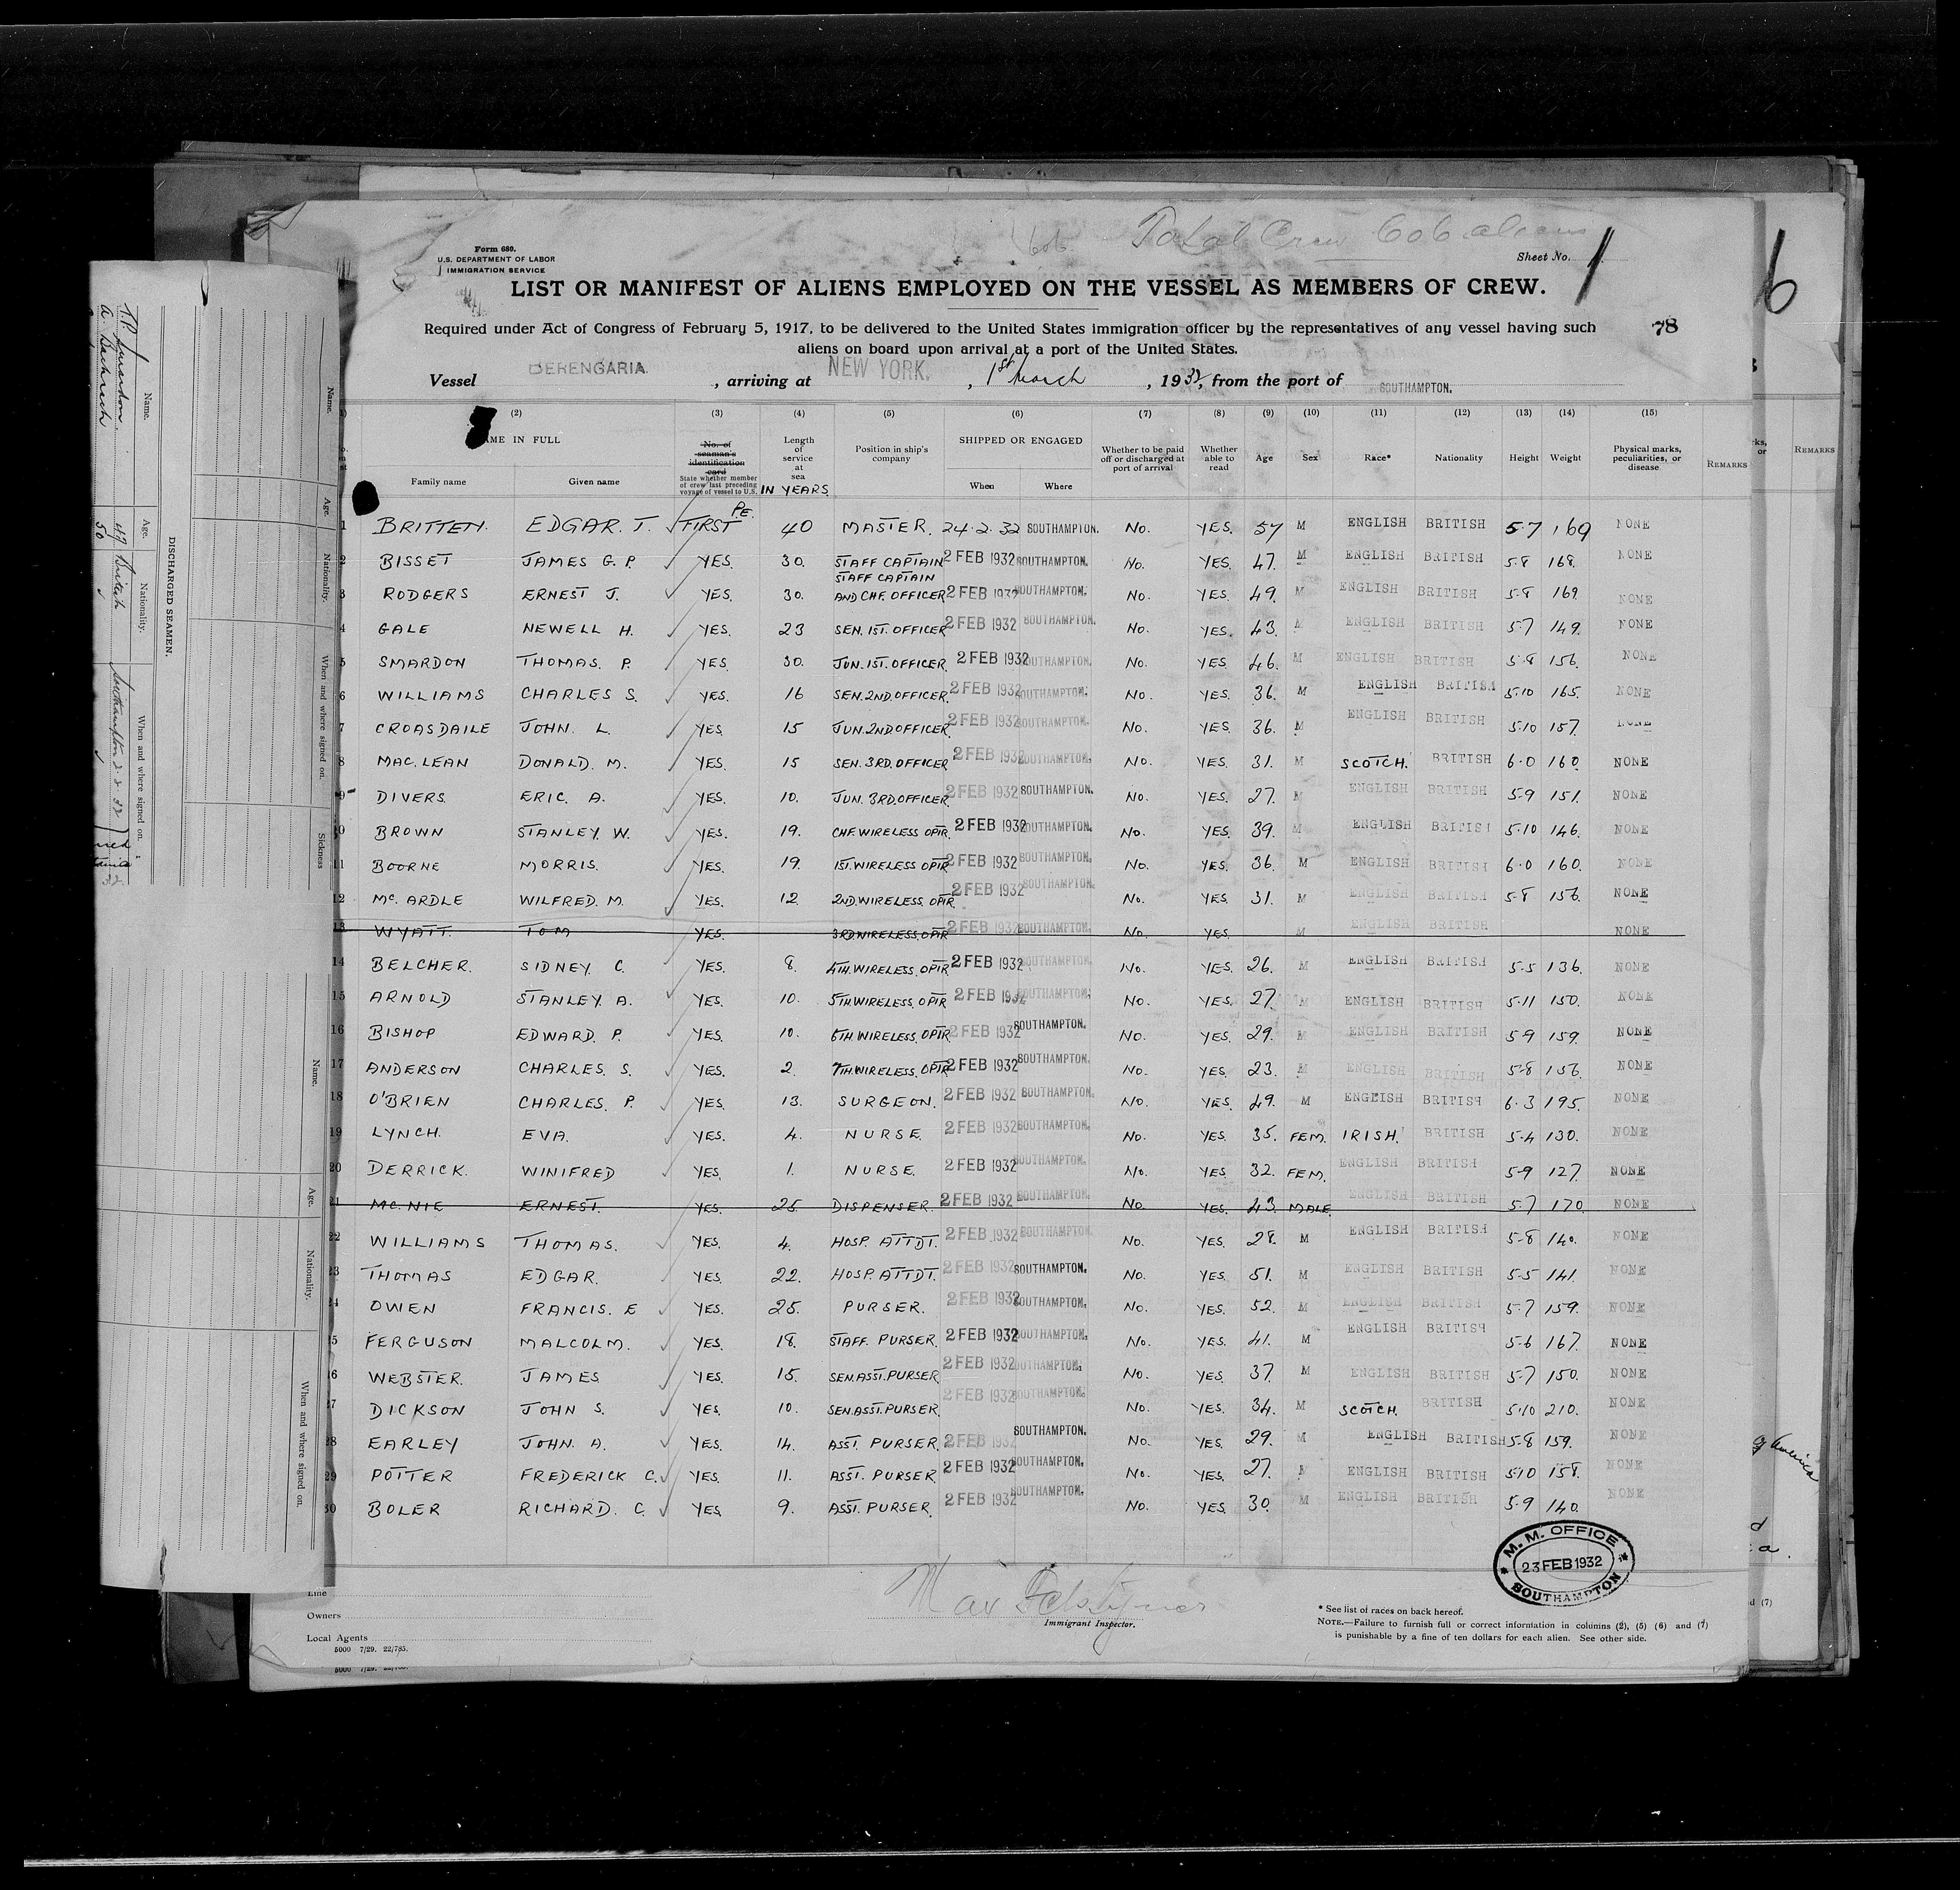 Total Crew 606 aliens
606
Form 680.
U.S. DEPARTMENT OF LABOR
IMMIGRATION SERVICE
Sheet No. 1
6
LIST OR MANIFEST OF ALIENS EMPLOYED ON THE VESSEL AS MEMBERS OF CREW.
Required under Act of Congress of February 5, 1917, to be delivered to the United States immigration officer by the representatives of any vessel having such
78
aliens on board upon arrival at a port of the United States.
Vessel BERENGARIA , arriving at NEW YORK. , 1st March , 1932, from the port of SOUTHAMPTON.
(2) (3) (4) (5) (6) (7) (8) (9) (10) (11) (12) (13) (14) (15)
NAME IN FULL Family name Given name
No. of seaman's identification card State whether member of crew last preceding voyage of vessel to U.S.
Length of service at sea IN YEARS
Position in ship's company
SHIPPED OR ENGAGED When Where
Whether to be paid off or discharged at port of arrival
Whether able to read
Age Sex Race* Nationality Height Weight
Physical marks, peculiarities, or disease
REMARKS
REMARKS
1 BRITTEN. EDGAR. T. FIRST P.E. 40 MASTER. 24.2.32 SOUTHAMPTON. No. YES. 57 M ENGLISH BRITISH 5.7 169 NONE
2 BISSET JAMES G. P. YES. 30. STAFF CAPTAIN 2 FEB 1932 SOUTHAMPTON. No. YES. 47. M ENGLISH BRITISH 5.8 168. NONE
3 RODGERS ERNEST J. YES. 30. STAFF CAPTAIN AND CHF. OFFICER 2 FEB 1932 SOUTHAMPTON. No. YES. 49. M ENGLISH BRITISH 5.8 169. NONE
4 GALE NEWELL H. YES. 23 SEN. 1ST. OFFICER 2 FEB 1932 SOUTHAMPTON. No. YES. 43. M ENGLISH BRITISH 5.7 149. NONE
5 SMARDON THOMAS. P. YES. 30. JUN. 1ST. OFFICER 2 FEB 1932 SOUTHAMPTON. No. YES. 46. M ENGLISH BRITISH 5.8 156. NONE
6 WILLIAMS CHARLES S. YES. 16 SEN. 2ND. OFFICER 2 FEB 1932 SOUTHAMPTON. No. YES. 36. M ENGLISH BRITISH 5.10 165. NONE
7 CROASDAILE JOHN. L. YES. 15 JUN. 2ND. OFFICER. 2 FEB 1932 SOUTHAMPTON. No. YES. 36. M ENGLISH BRITISH 5.10 157. NONE
8 MAC. LEAN DONALD. M. YES. 15 SEN. 3RD. OFFICER 2 FEB 1932 SOUTHAMPTON. No. YES. 31. M SCOTCH. BRITISH 6.0 160. NONE
9 DIVERS. ERIC. A. YES. 10. JUN. 3RD. OFFICER. 2 FEB 1932 SOUTHAMPTON. No. YES. 27. M ENGLISH BRITISH 5.9 151. NONE
10 BROWN STANLEY. W. YES. 19. CHF. WIRELESS OPTR. 2 FEB 1932 SOUTHAMPTON. No. YES. 39. M ENGLISH BRITISH 5.10 146. NONE
11 BOORNE MORRIS. YES. 19. 1ST. WIRELESS OPTR 2 FEB 1932 SOUTHAMPTON. No. YES. 36. M ENGLISH BRITISH 6.0 160. NONE
12 Mc. ARDLE WILFRED. M. YES. 12. 2ND. WIRELESS. OPTR. 2 FEB 1932 SOUTHAMPTON. No. YES. 31. M ENGLISH BRITISH 5.8 156. NONE
13 WYATT. TOM YES. 3RD. WIRELESS. OPTR 2 FEB 1932 SOUTHAMPTON. No. YES. M ENGLISH BRITISH NONE
14 BELCHER. SIDNEY. C. YES. 8. 4TH. WIRELESS. OPTR 2 FEB 1932 SOUTHAMPTON. No. YES. 26. M ENGLISH BRITISH 5.5 136. NONE
15 ARNOLD STANLEY. A. YES. 10. 5TH. WIRELESS. OPTR 2 FEB 1932 SOUTHAMPTON. No. YES. 27. M ENGLISH BRITISH 5.11 150. NONE
16 BISHOP EDWARD. P. YES. 10. 6TH. WIRELESS. OPTR 2 FEB 1932 SOUTHAMPTON. No. YES. 29. M ENGLISH BRITISH 5.9 159. NONE
17 ANDERSON CHARLES. S. YES. 2. 7TH. WIRELESS. OPTR 2 FEB 1932 SOUTHAMPTON. No. YES. 23. M ENGLISH BRITISH 5.8 156. NONE
18 O'BRIEN CHARLES. P. YES. 13. SURGEON. 2 FEB 1932 SOUTHAMPTON. No. YES. 49. M ENGLISH BRITISH 6.3 195. NONE
19 LYNCH. EVA. YES. 4. NURSE. 2 FEB 1932 SOUTHAMPTON. No. YES. 35. FEM. IRISH. BRITISH 5.4 130. NONE
20 DERRICK. WINIFRED YES. 1. NURSE. 2 FEB 1932 SOUTHAMPTON. No. YES. 32. FEM. ENGLISH BRITISH 5.9 127. NONE
21 MC. NIE ERNEST. YES. 25. DISPENSER. 2 FEB 1932 SOUTHAMPTON. No. YES. 43. MALE ENGLISH BRITISH 5.7 170. NONE
22 WILLIAMS THOMAS. YES. 4. HOSP. ATTDT. 2 FEB 1932 SOUTHAMPTON. No. YES. 28. M ENGLISH BRITISH 5.8 140. NONE
23 THOMAS EDGAR. YES. 22. HOSP. ATTDT. 2 FEB 1932 SOUTHAMPTON. No. YES. 51. M ENGLISH BRITISH 5.5 141. NONE
24 OWEN FRANCIS. E YES. 25. PURSER. 2 FEB 1932 SOUTHAMPTON. No. YES. 52. M ENGLISH BRITISH 5.7 159. NONE
25 FERGUSON MALCOLM. YES. 18. STAFF. PURSER. 2 FEB 1932 SOUTHAMPTON. No. YES. 41. M ENGLISH BRITISH 5.6 167. NONE
26 WEBSTER. JAMES YES. 15. SEN. ASST. PURSER 2 FEB 1932 SOUTHAMPTON. No. YES. 37. M ENGLISH BRITISH 5.7 150. NONE
27 DICKSON JOHN S. YES. 10. SEN. ASST. PURSER. 2 FEB 1932 SOUTHAMPTON. No. YES. 34. M SCOTCH. BRITISH 5.10 210. NONE
28 EARLEY JOHN. A. YES. 14. ASST. PURSER. 2 FEB 1932 SOUTHAMPTON. No. YES. 29. M ENGLISH BRITISH 5.8 159. NONE
29 POTTER FREDERICK C. YES. 11. ASST. PURSER 2 FEB 1932 SOUTHAMPTON. No. YES. 27. M ENGLISH BRITISH 5.10 158. NONE
30 BOLER RICHARD. C. YES. 9. ASST. PURSER. 2 FEB 1932 SOUTHAMPTON. No. YES. 30. M ENGLISH BRITISH 5.9 140. NONE
of America
M. M. OFFICE
23 FEB 1932
SOUTHAMPTON
Line
Owners
Local Agents
5000 7/29. 22/785.
5000 7/29. 22/785.
Max
Immigrant Inspector.
* See list of races on back hereof.
NOTE.—Failure to furnish full or correct information in columns (2), (5) (6) and (7)
is punishable by a fine of ten dollars for each alien. See other side.
d (7)
DISCHARGED SEAMEN.
Name. Age. Nationality. When and where signed on.
T.P. Smardon. 49 British Southampton 2.2.32
A. Bachrach 50
Name. Age. Nationality. When and where signed on. Sickness
Name. Age. Nationality. When and where signed on.